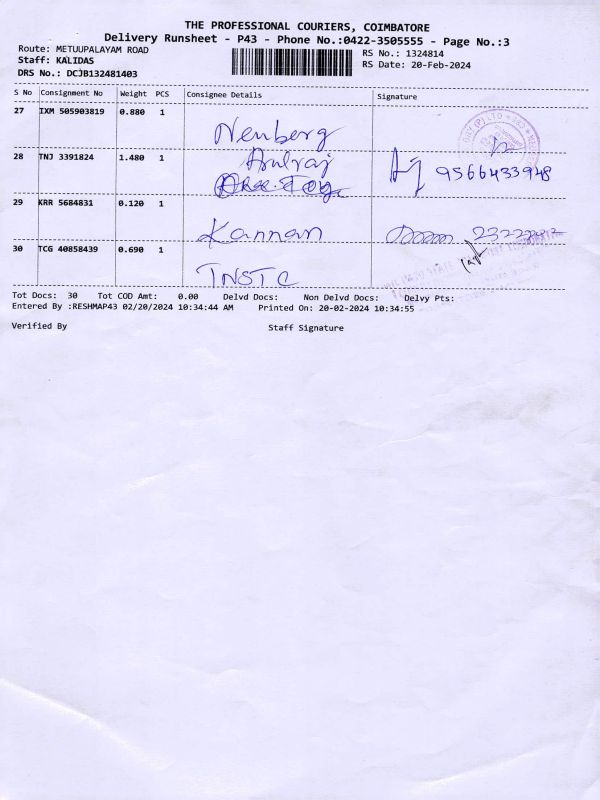 THE PROFESSIONAL COURIERS, COIMBATORE
Delivery Runsheet - P43 - Phone No.:0422-3505555 - Page No.:3
Route: METUUPALAYAM ROAD
RS No.: 1324814
Staff: KALIDAS
RS Date: 20-Feb-2024
DRS No.: DCJB132481403
S No Consignment No Weight PCS Consignee Details Signature
27 IXM 505903819 0.880 1
Nenberg
28 TNJ 3391824 1.480 1
Arulraj
9566433948
29 KRR 5684831 0.120 1
Kannan
30 TCG 40858439 0.690 1
TNSTC
Tot Docs: 30 Tot COD Amt: 0.00 Delvd Docs: Non Delvd Docs: Delvy Pts:
Entered By :RESHMAP43 02/20/2024 10:34:44 AM Printed On: 20-02-2024 10:34:55
Verified By Staff Signature